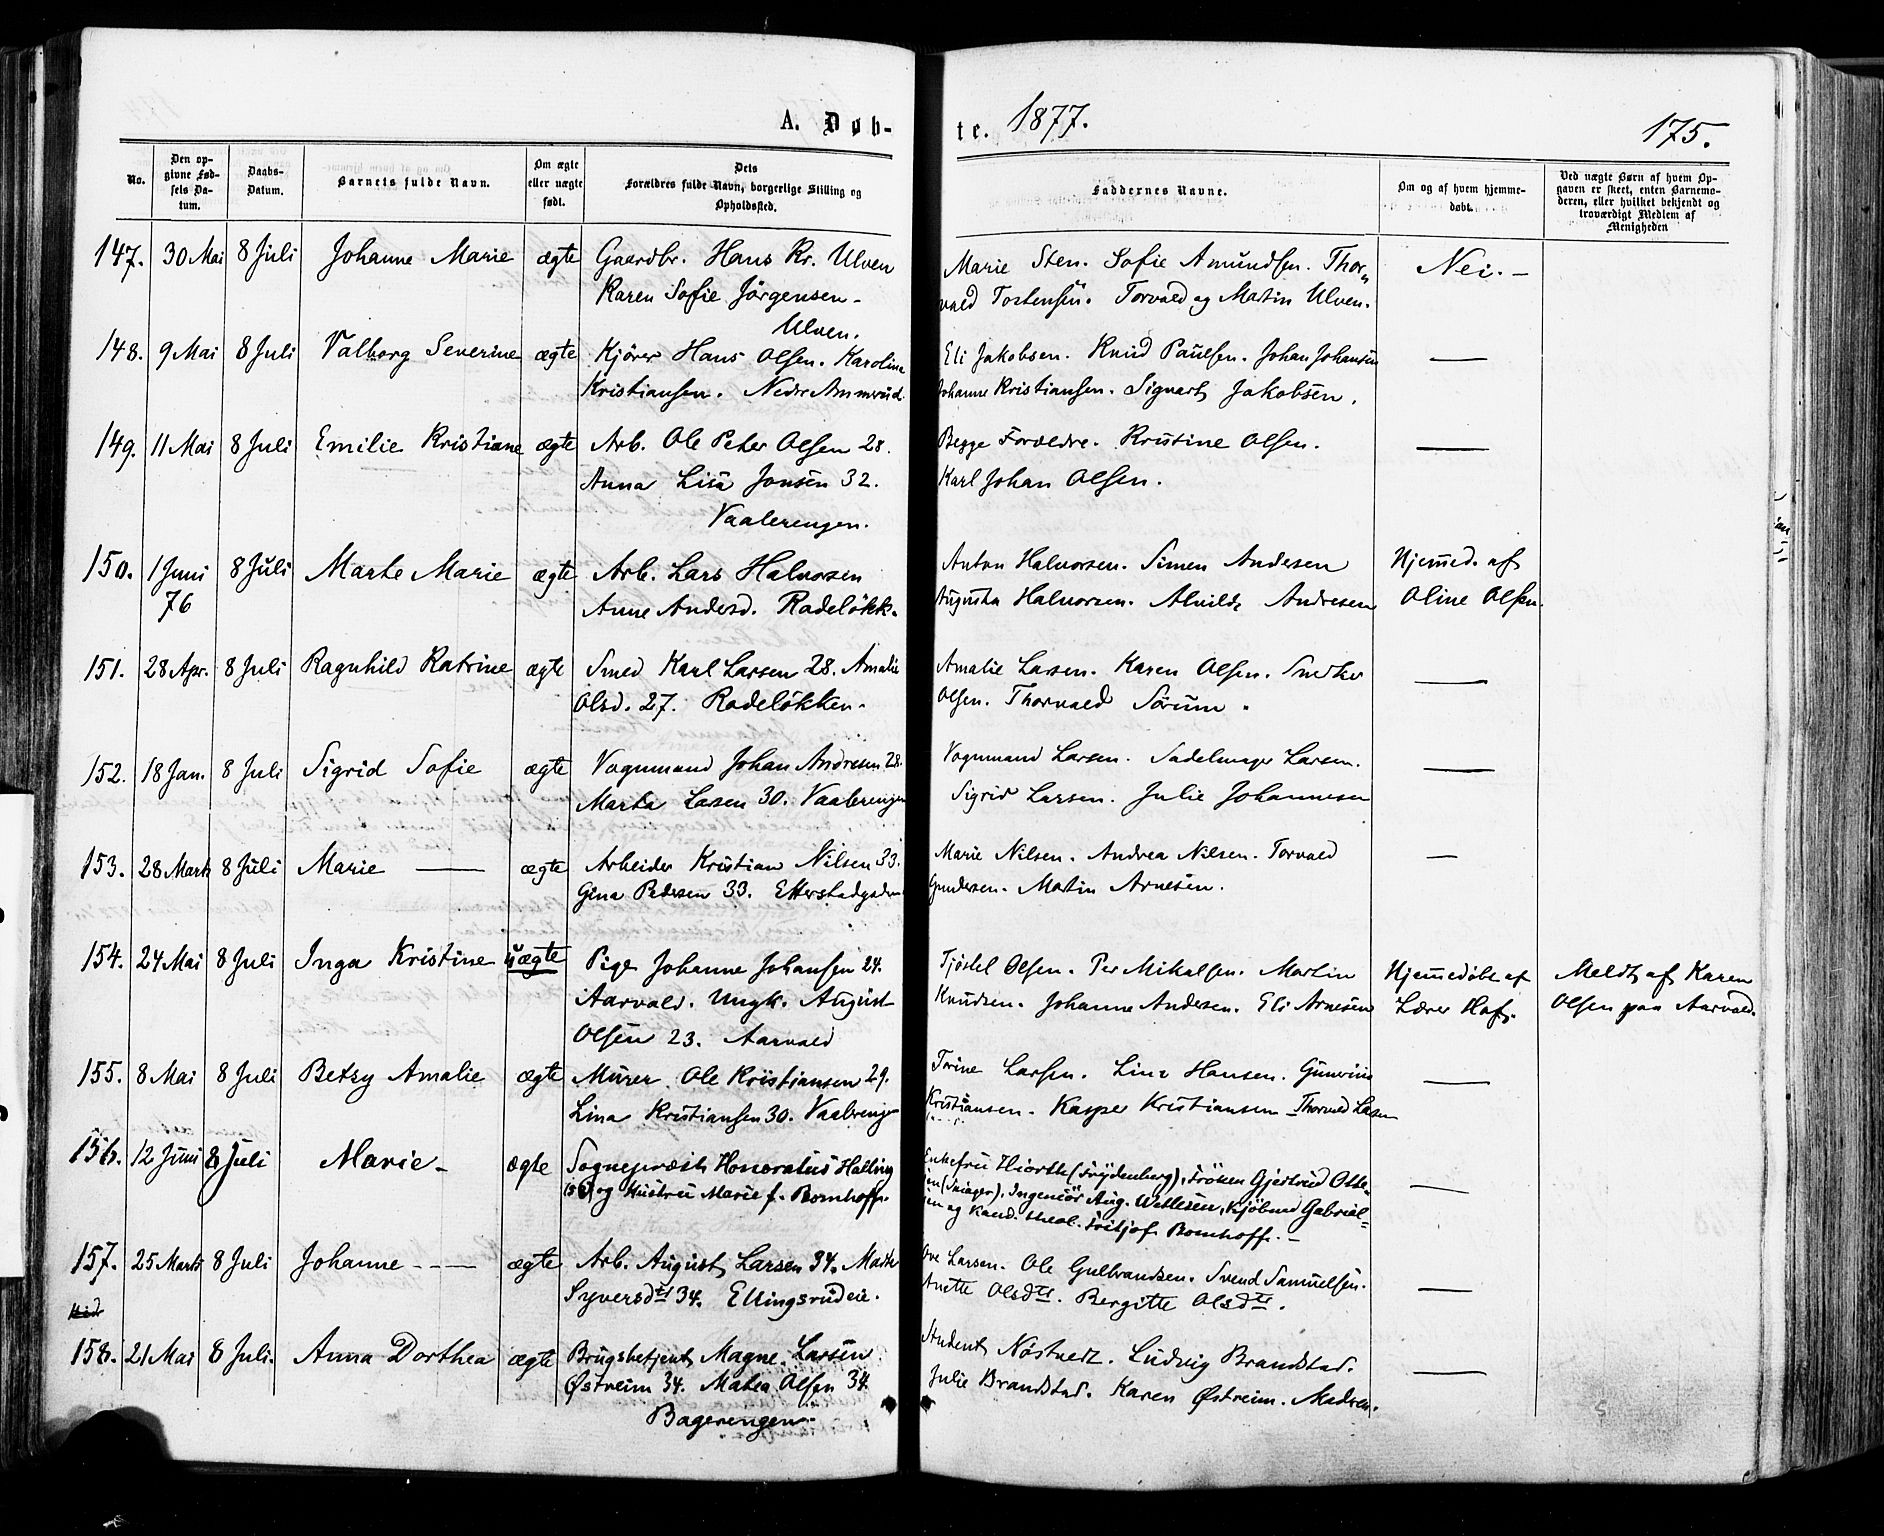 A. Døb-
te. 1877.
175.
No.
Den op-
givne Fød-
sels Da-
tum.
Daabs-
Datum.
Barnets fulde Navn.
Om ægte
eller uægte
født.
Dets
Forældres fulde Navn, borgerlige Stilling og
Opholdssted.
Faddernes Navne.
Om og af hvem hjemme-
døbt.
Ved uægte Børn af hvem Op-
gaven er skeet, enten Barnemo-
deren, eller hvilket bekjendt og
troværdigt Medlem af
Menigheden
147. 30 Mai 8 Juli Johanne Marie ægte Gaardbr. Hans Kr. Ulven Marie Sten. Sofie Amundsen. Thor- Nei. -
Karen Sofie Jørgensen - vald Tostensen. Torvald og Martin Ulven.
Ulven.
148. 9 Mai 8 Juli Valborg Severine ægte Kjører Hans Olsen. Karoline Eli Jakobsen. Knud Paulsen. Johan Johansen —
Kristiansen. Nedre Ammerud. Johanne Kristiansen. Sigvart Jakobsen.
149. 11 Mai 8 Juli Emilie Kristiane ægte Arb. Ole Peter Olsen 28. Begge Forældre. Kristine Olsen. —
Anna Lisa Jonsen 32. Karl Johan Olsen.
Vaalerengen.
150. 1 Juni 8 Juli Marte Marie ægte Arb. Lars Halvorsen Anton Halvorsen. Simen Andersen Hjemmed. af
76 Anne Andersd. Radeløkk. Augusta Halvorsen. Alvilde Andresen Oline Olsen.
151. 28 Apr. 8 Juli Ragnhild Katrine ægte Smed Karl Larsen 28. Amalie Amalie Larsen. Karen Olsen. Snedker —
Olsd. 27. Radeløkken. Olsen. Thorvald Sørum.
152. 18 Jan. 8 Juli Sigrid Sofie ægte Vognmand Johan Andresen 28. Vognmand Larsen. Sadelmager Larsen. —
Marta Larsen 30. Vaalerengen Sigrid Larsen. Julie Johannesen
153. 28 Marts 8 Juli Marie — ægte Arbeider Kristian Nilsen 33. Marie Nilsen. Andrea Nilsen. Torvald —
Gina Pedersen 33. Etterstadgaden Gundersen. Martin Arnesen.
154. 24 Mai 8 Juli Inga Kristine uægte Pige Johanne Johansen 24. Tjøstel Olsen. Per Mikalsen. Martin Hjemmedøbt af Meldt af Karen
Aarvold. Ungk. August Knudsen. Johanne Andersen. Eli Arnesen Lærer Hof. Olsen paa Aarvold.
Olsen 23. Aarvold
155. 8 Mai 8 Juli Betzy Amalie ægte Murer Ole Kristiansen 29. Trine Larsen. Line Hansen. Gunerine —
Lina Kristiansen 30. Vaalerengen Kristiansen. Kasper Kristiansen - Thorvald Larsen
156. 12 Juni 8 Juli Marie - ægte Sognepræst Honoratus Halling Enkefru Hiorth (Frydenberg), Frøken Gjertrud Otte-
og Hustru Marie f. Bomhoff. sen (Skiager), Ingeniør Aug. Wetlesen, Kjøbmd Gabriel- —
sen og Kand. theol. Fritjof Bomhoff. -
157. 25 Marts 8 Juli Johanne - - — ægte Arb. August Larsen 34. Marte Ove Larsen. Ole Gulbrandsen. Svend Samuelsen.
Syversdtr 34. Ellingsrudeie. Anette Olsdtr. Bergitte Olsdtr. —
158. 21 Mai 8 Juli. Anna Dorthea ægte Brugsbetjent Magne Larsen Student Nøstvedt. Ludvig Brandstad.
Østreim 34. Matea Olsen 34 Julie Brandstad. Karen Østreim. Madsen. —
Bagerengen.